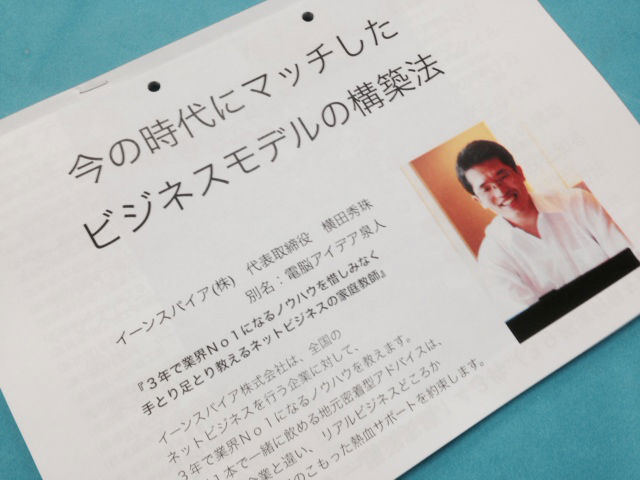 今の時代にマッチした
ビジネスモデルの構築法
イーンスパイア(株) 代表取締役 横田秀珠
別名：電脳アイデア泉人
『３年で業界Ｎｏ１になるノウハウを惜しみなく
手とり足とり教えるネットビジネスの家庭教師』
イーンスパイア株式会社は、全国の
ネットビジネスを行う企業に対して、
３年で業界Ｎｏ１になるノウハウを教えます。
１本で一緒に飲める地元密着型アドバイスは、
企業と違い、リアルビジネスどころか
のこもった熱血サポートを約束します。